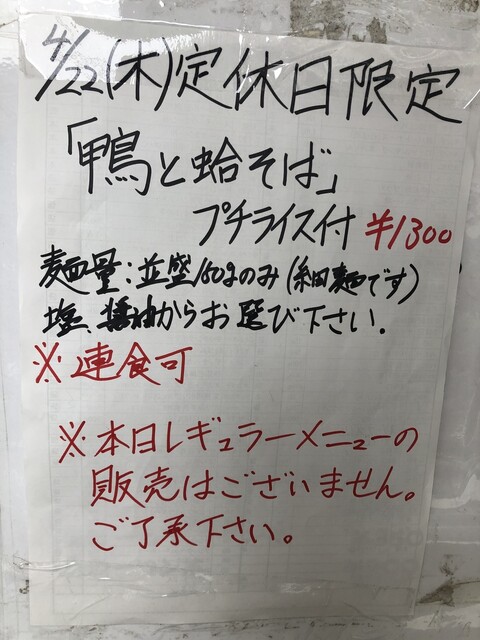 4/22(木)定休日限定
「鴨と蛤そば」
プチライス付 ¥1300
麺量:並盛150gのみ(細麺です)
塩、醤油からお選び下さい.
※連食可
※本日レギュラーメニューの
販売はございません。
ご了承下さい。